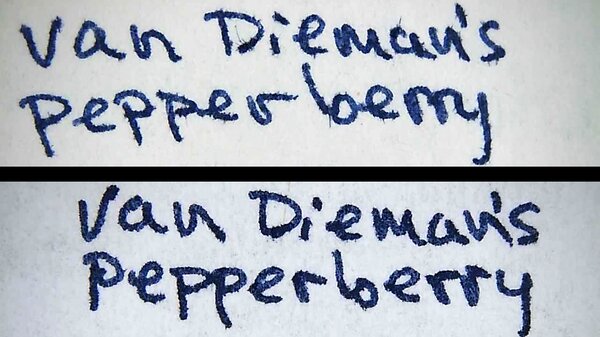 Van Dieman's
Pepperberry
Van Dieman's
Pepperberry